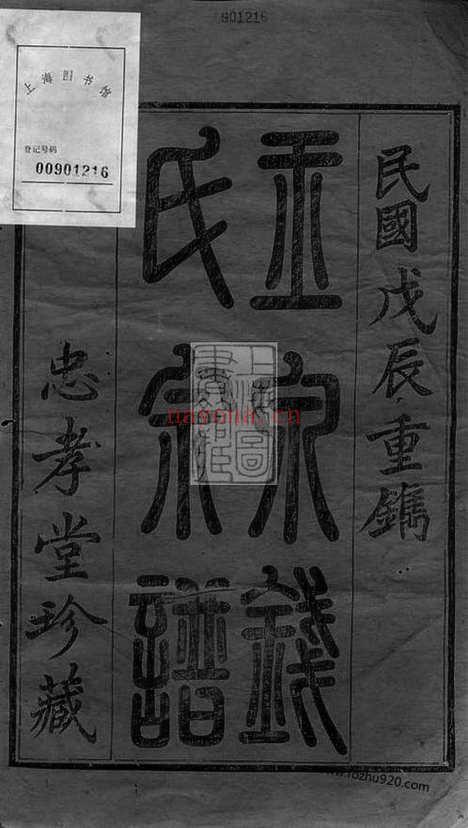 901216
上海图书馆
登记号码
00901216
民國戊辰重鐫
錢
氏宗譜
忠孝堂珍藏
上海圖書館藏
nasona.cn
www.fozhu920.com